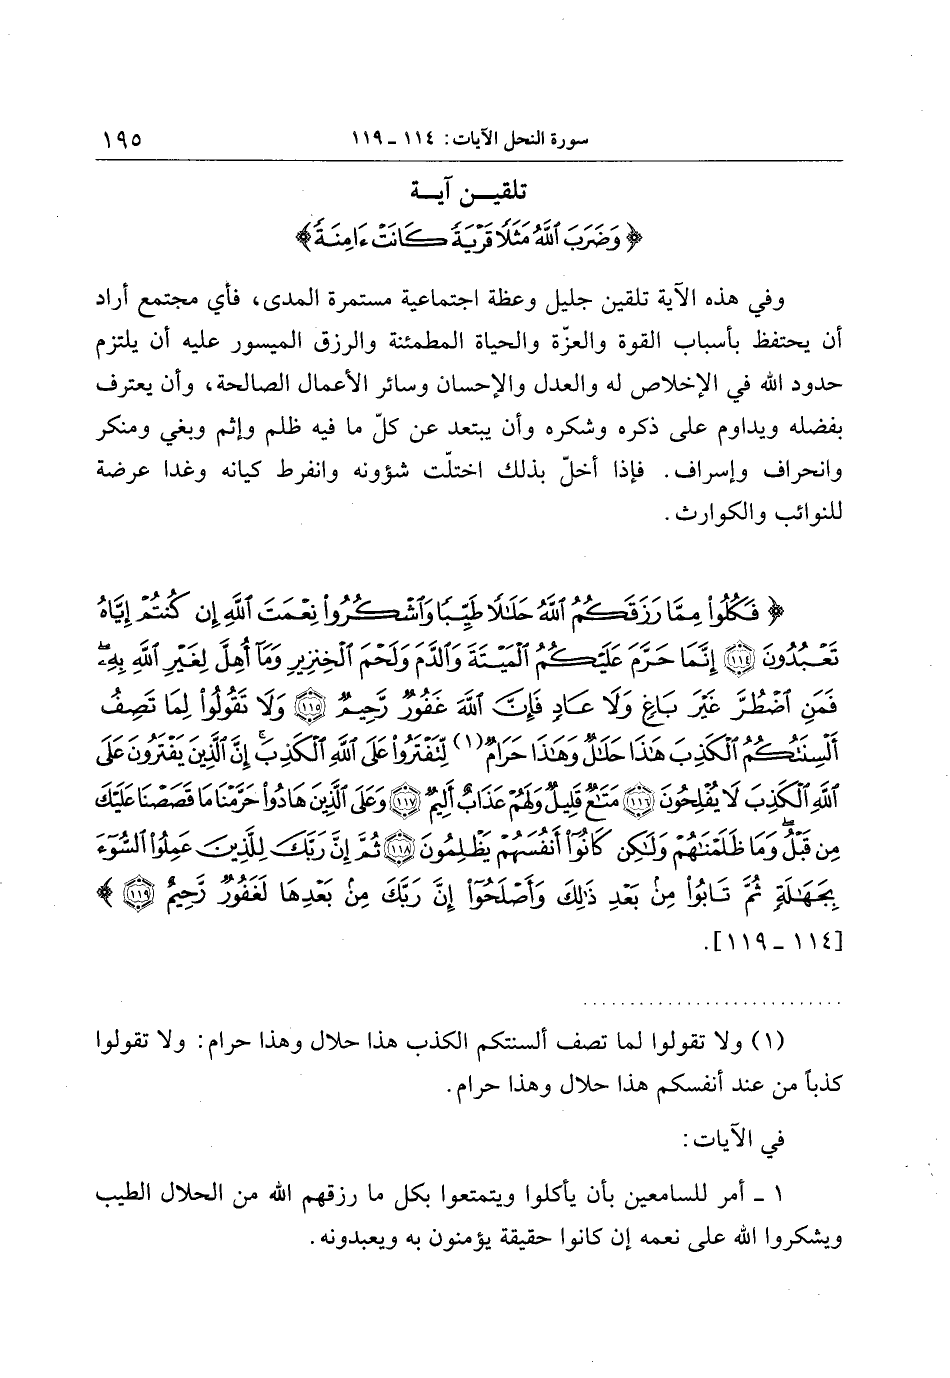 سورة النحل الآيات: ١١٤ ـ ١١٩ ١٩٥
تلقيـــن آيـــة
﴿ وَضَرَبَ ٱللَّهُ مَثَلًا قَرْيَةً كَانَتْ ءَامِنَةً ﴾
وفي هذه الآية تلقين جليل وعظة اجتماعية مستمرة المدى، فأي مجتمع أراد
أن يحتفظ بأسباب القوة والعزّة والحياة المطمئنة والرزق الميسور عليه أن يلتزم
حدود الله في الإخلاص له والعدل والإحسان وسائر الأعمال الصالحة، وأن يعترف
بفضله ويداوم على ذكره وشكره وأن يبتعد عن كلّ ما فيه ظلم وإثم وبغي ومنكر
وانحراف وإسراف. فإذا أخلّ بذلك اختلّت شؤونه وانفرط كيانه وغدا عرضة
للنوائب والكوارث.
﴿ فَكُلُوا۟ مِمَّا رَزَقَكُمُ ٱللَّهُ حَلَٰلًا طَيِّبًا وَٱشْكُرُوا۟ نِعْمَتَ ٱللَّهِ إِن كُنتُمْ إِيَّاهُ
تَعْبُدُونَ ﴿١١٤﴾ إِنَّمَا حَرَّمَ عَلَيْكُمُ ٱلْمَيْتَةَ وَٱلدَّمَ وَلَحْمَ ٱلْخِنزِيرِ وَمَآ أُهِلَّ لِغَيْرِ ٱللَّهِ بِهِۦۖ
فَمَنِ ٱضْطُرَّ غَيْرَ بَاغٍ وَلَا عَادٍ فَإِنَّ ٱللَّهَ غَفُورٌ رَّحِيمٌ ﴿١١٥﴾ وَلَا تَقُولُوا۟ لِمَا تَصِفُ
أَلْسِنَتُكُمُ ٱلْكَذِبَ هَٰذَا حَلَٰلٌ وَهَٰذَا حَرَامٌ (١) لِّتَفْتَرُوا۟ عَلَى ٱللَّهِ ٱلْكَذِبَۚ إِنَّ ٱلَّذِينَ يَفْتَرُونَ عَلَى
ٱللَّهِ ٱلْكَذِبَ لَا يُفْلِحُونَ ﴿١١٦﴾ مَتَٰعٌ قَلِيلٌ وَلَهُمْ عَذَابٌ أَلِيمٌ ﴿١١٧﴾ وَعَلَى ٱلَّذِينَ هَادُوا۟ حَرَّمْنَا مَا قَصَصْنَا عَلَيْكَ
مِن قَبْلُۖ وَمَا ظَلَمْنَٰهُمْ وَلَٰكِن كَانُوٓا۟ أَنفُسَهُمْ يَظْلِمُونَ ﴿١١٨﴾ ثُمَّ إِنَّ رَبَّكَ لِلَّذِينَ عَمِلُوا۟ ٱلسُّوٓءَ
بِجَهَٰلَةٍ ثُمَّ تَابُوا۟ مِنۢ بَعْدِ ذَٰلِكَ وَأَصْلَحُوٓا۟ إِنَّ رَبَّكَ مِنۢ بَعْدِهَا لَغَفُورٌ رَّحِيمٌ ﴿١١٩﴾ ﴾
[١١٤ ـ ١١٩].
(١) ولا تقولوا لما تصف ألسنتكم الكذب هذا حلال وهذا حرام: ولا تقولوا
كذباً من عند أنفسكم هذا حلال وهذا حرام.
في الآيات:
١ ـ أمر للسامعين بأن يأكلوا ويتمتعوا بكل ما رزقهم الله من الحلال الطيب
ويشكروا الله على نعمه إن كانوا حقيقة يؤمنون به ويعبدونه.